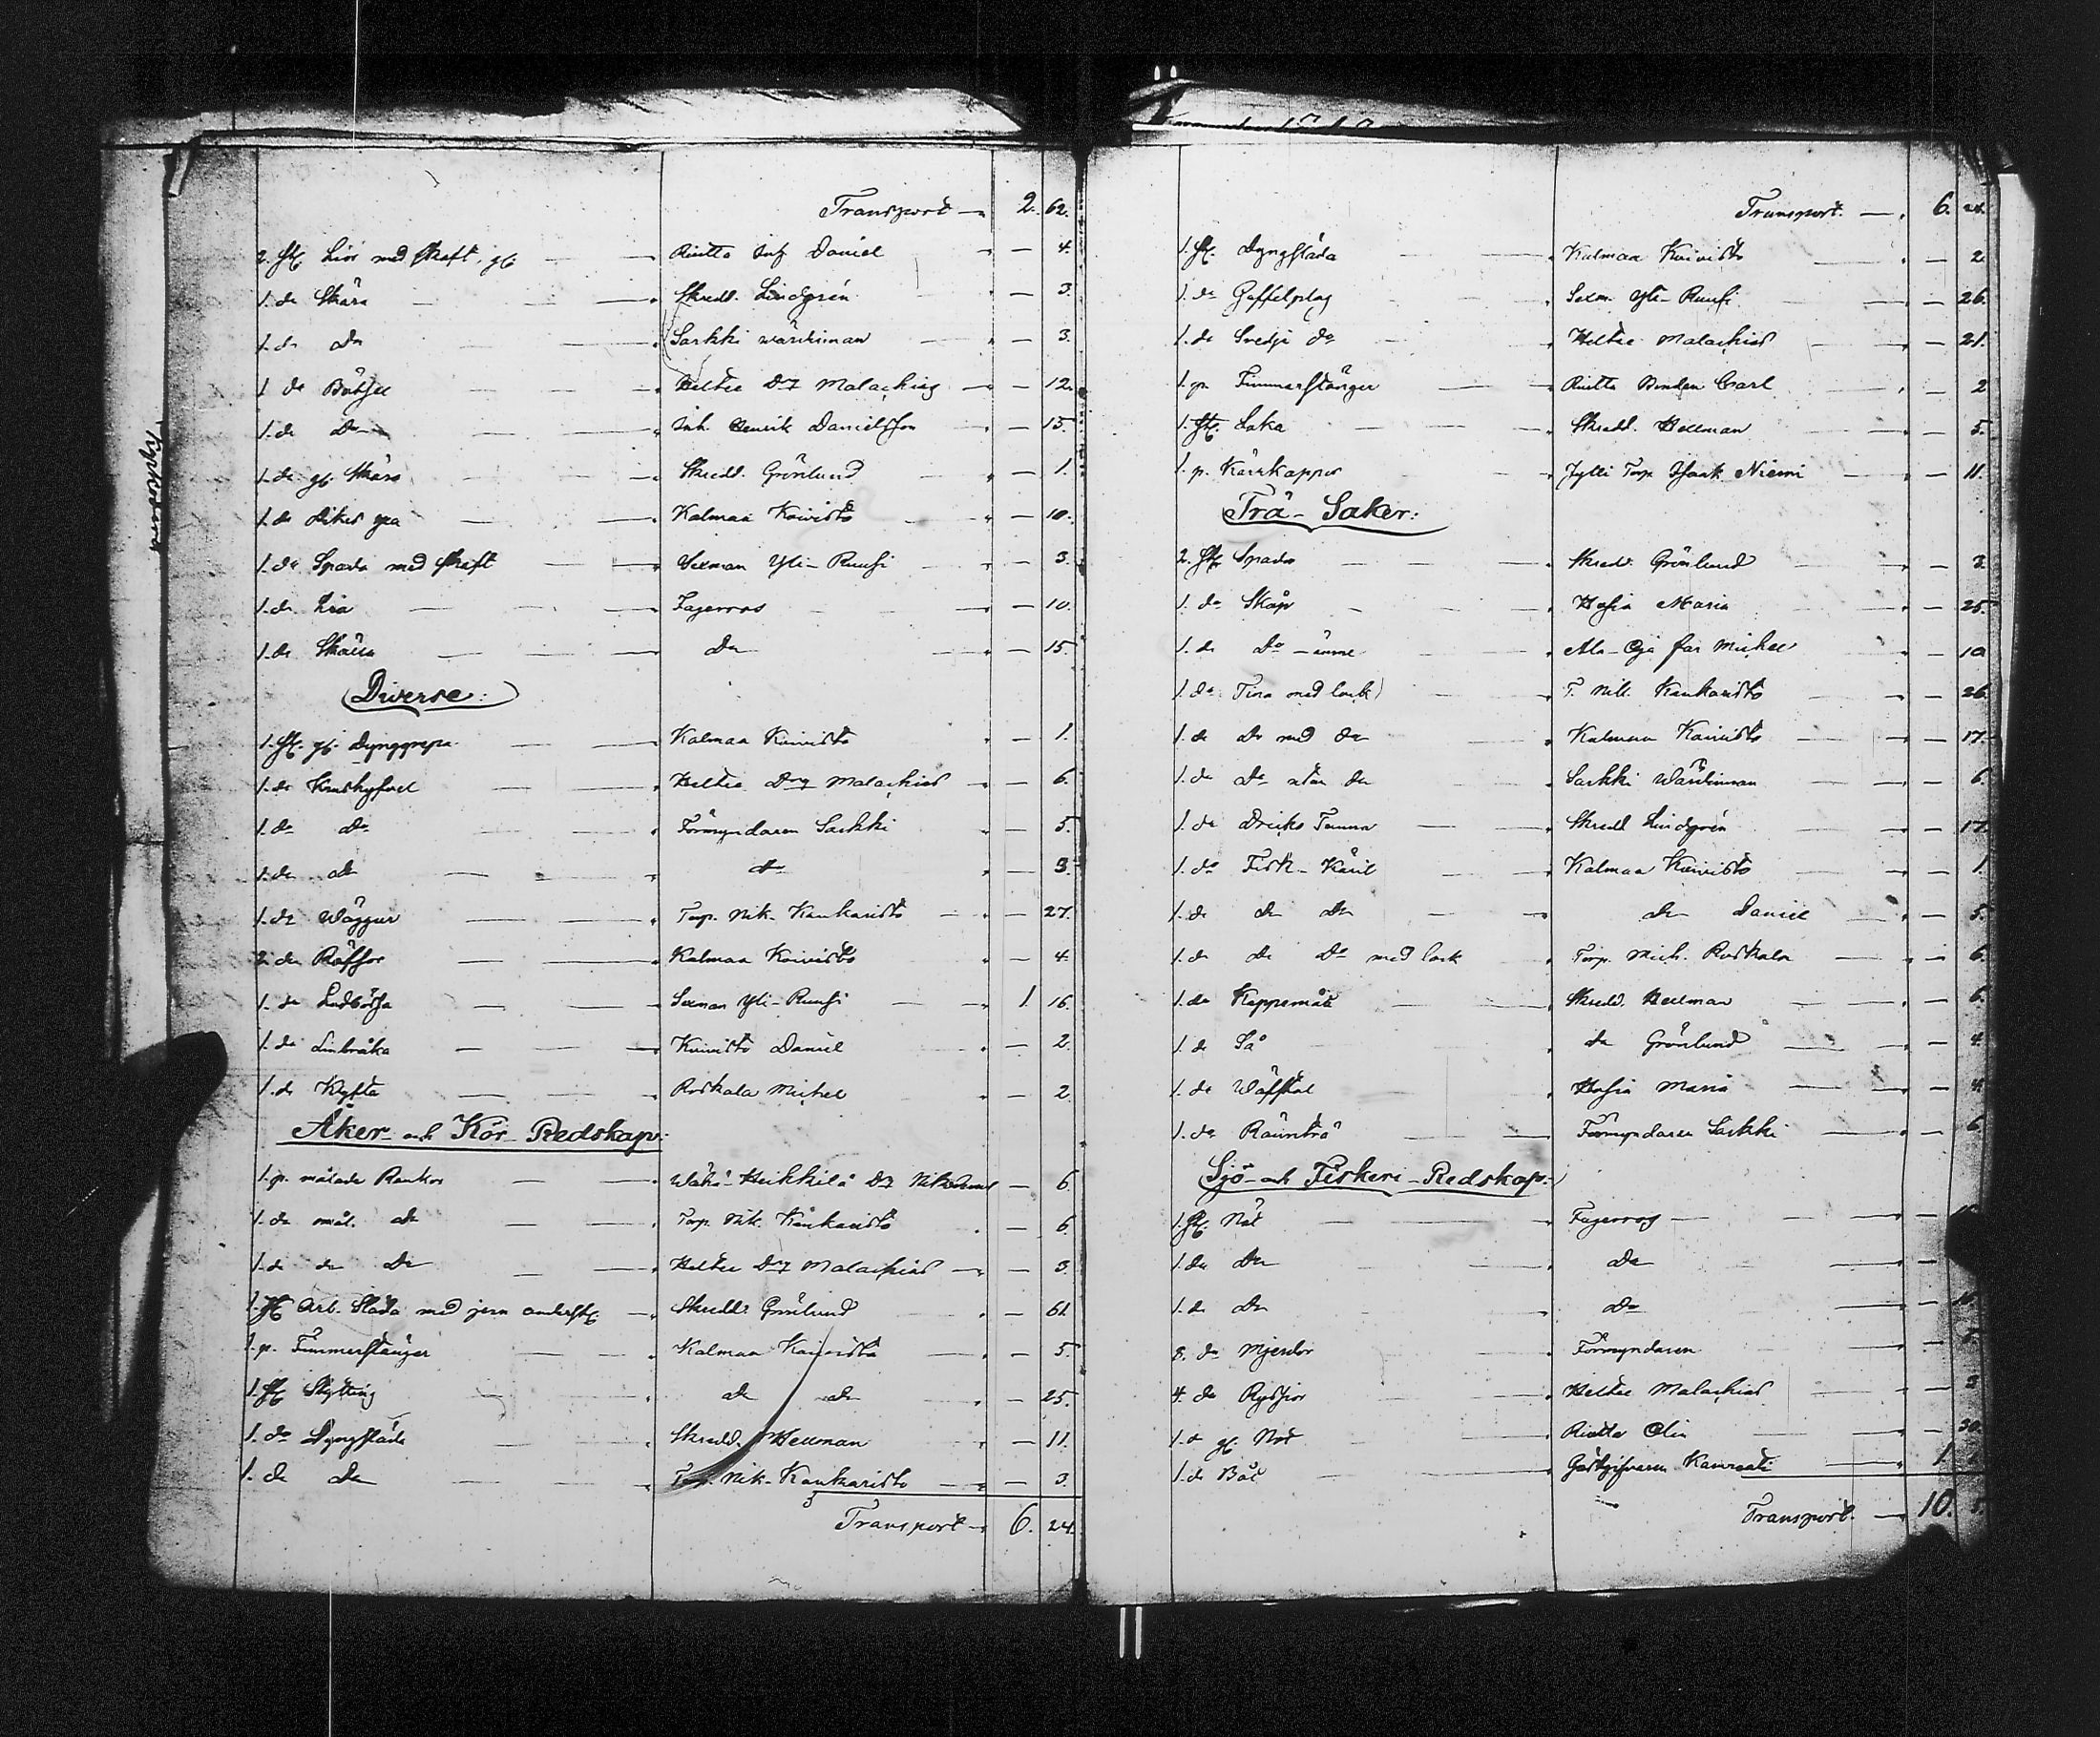 Transport — 2. 62.
2. st. Liör med skaft, gl. — Riitta Inh Daniel — 4.
1. do Skära — Skredd. Lindgrén — 3.
1. do Do — Sarkki wärdinnan — 3.
1. do — Heltee Drg Malachias — 12.
1. do Do — Inh. Henrik Danielsson — 15.
1. do gl. Skära — Skredd. Grönlund — 1.
1. do Dikes — Kalmaa Koivisto — 10.
1. do Spada med skaft — Sexman Yli-Ruusi — 3.
1. do Lia — Fagerroos — 10.
1. do Skära — Do — 15.
Diverse:
1. st. gl. Dynggrepa — Kalmaa Koivisto — 1.
1. do — Heltee Drg Malachias — 6.
1. do do — Förmyndaren Sarkki — 5.
1. do do — do — 3.
1. do Wäggur — Torp. Nik. Kankaristo — 27.
2. do Räfsor — Kalmaa Koivisto — 4.
1. do — Sexman Yli-Ruusi — 1. 16.
1. do Linbråka — Koivisto Daniel — 2.
1. do Klyfta — Roskala Michel — 2.
Åker- och Kör-Redskap:
1. p. målade Rankor — Wähä-Heikkilä Drg — 6.
1. do omål. do — Torp. Nik. Kankaristo — 6.
1. do do do — Heltee Drg Malachias — 3.
1. st. Arb. Släda med jern — Skredd. Grönlund — 61.
1. p. Timmerstänger — Kalmaa Koivisto — 5.
1. st. Skytting — do do — 25.
1. do Dyngsläda — Skredd. Hellman — 11.
1. do do — Torp. Nik. Kankaristo — 3.
Transport — 6. 24.
Transport. — 6. 24.
1. st. Dyngsläda — Kalmaa Koivisto — 2.
1. do Gaffelplog — Sexm. Yli-Ruusi — 26.
1. do Svedje do — Heltee Malachias — 21.
1. p. Timmerstänger — Riitta Bonden Carl — 2
1. st. Laka — Skredd. Hellman — 5.
1. p. Kärrkappor — Jylli Torp. Isaak Niemi — 11.
Trä-Saker:
2. st. Spador — Skredd. Grönlund — 3.
1. do Skåp — Hosia Maria — 25.
1. do Do — Ala-Oja far Michel — 10
1. do Tina med lock — T. Nik. Kankaristo — 26.
1. do Do med do — Kalmaa Koivisto — 17.
1. do Do utan do — Sarkki Wärdinnan — 6.
1. do Dricks Tunna — Skredd Lindgrén — 17.
1. do Fisk-Käril — Kalmaa Koivisto — 1.
1. do do do — do Daniel — 5.
1. do do do med lock — Torp. Mich. Roskala — 6.
1. do Kappemått — Skredd. Hellman — 6.
1. do Så — do Grönlund — 4.
1. do Wäfstol — Hosia Maria — 4.
1. do — Förmyndaren Sarkki — 6
Sjö- och Fiskeri-Redskap:
1. st. Nät — Fagerroos —
1. do Do — Do —
1. do Do — Do —
8. do Mjerdor — Förmyndaren —
4. do Ryssjor — Heltee Malachias —
1. d gl. Not — Riitta Elin — 30.
1. do Båt — Gästgifvaren — 1.
Transport. — 10. 5.